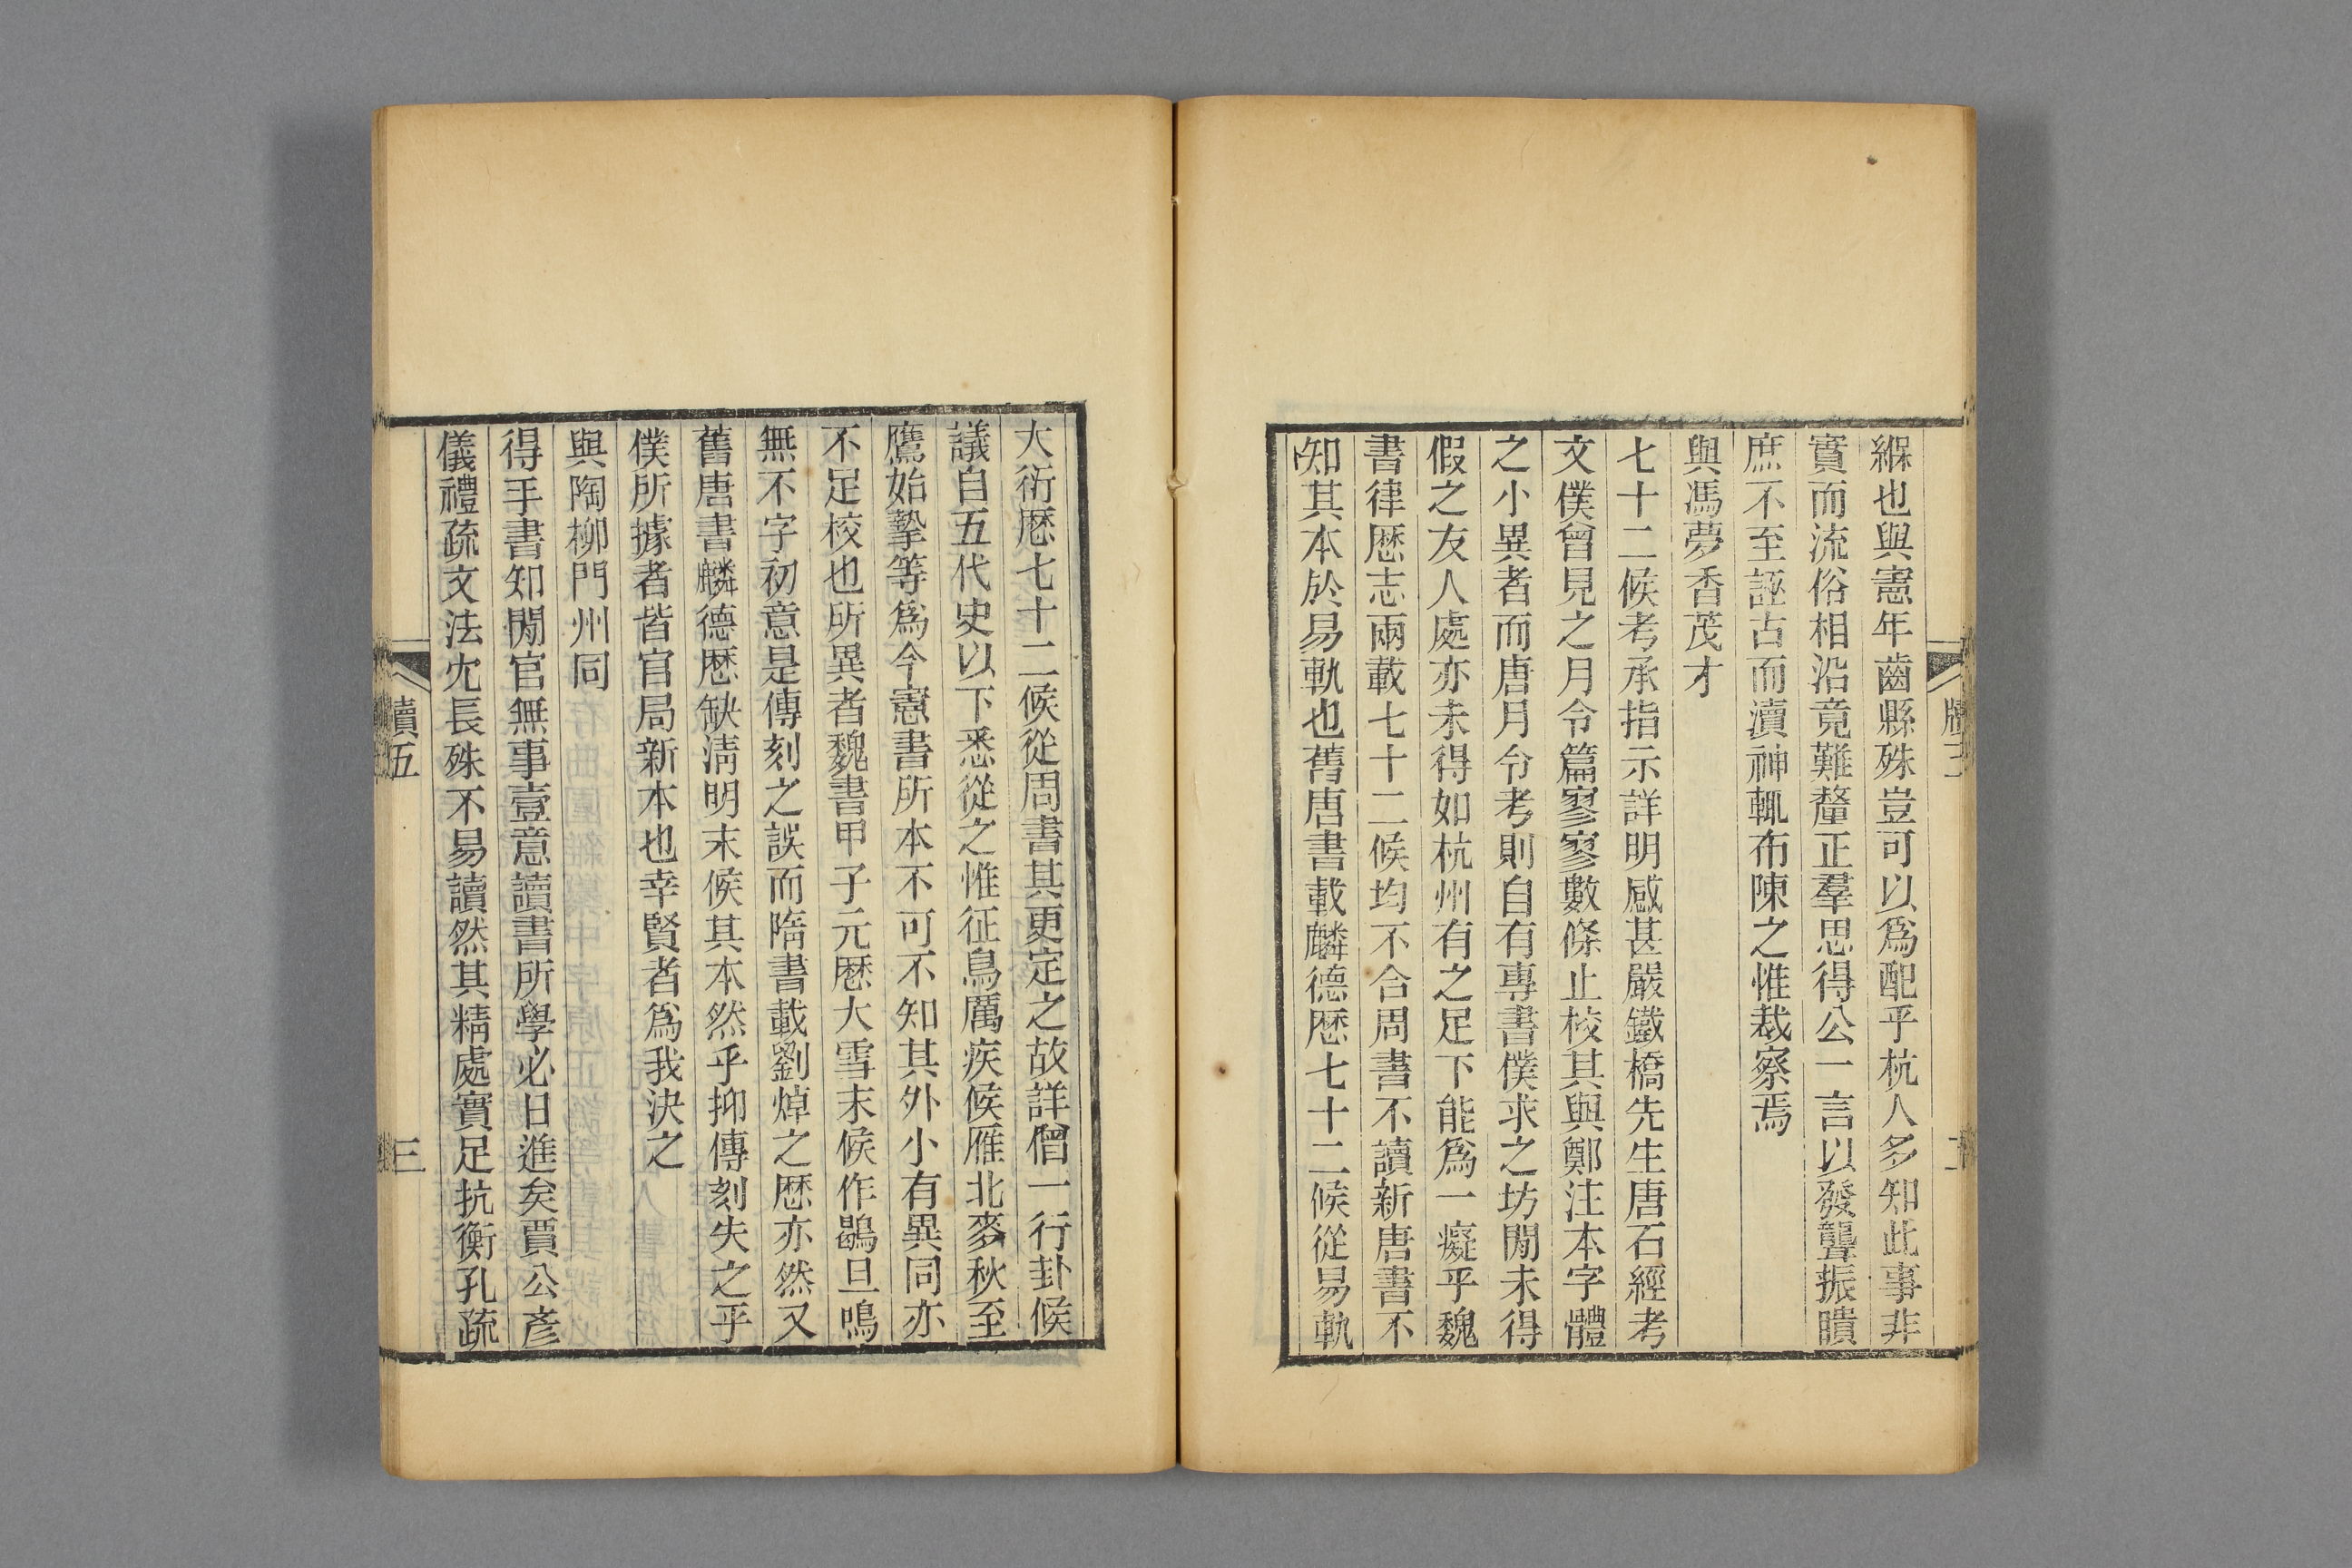 緥也與憲年齒縣殊豈可以爲配乎杭人多知此事非
實而流俗相沿竟難釐正羣思得公一言以發聾振瞶
庶不至誣古而瀆神輒布陳之惟裁察焉
與馮夢香茂才
七十二候考承指示詳明感甚嚴鐵橋先生唐石經考
文僕曾見之月令篇寥寥數條止校其與鄭注本字體
之小異者而唐月令考則自有專書僕求之坊閒未得
假之友人處亦未得如杭州有之足下能爲一癡乎魏
書律厯志兩載七十二候均不合周書不讀新唐書不
知其本於易軌也舊唐書載麟德厯七十二候從易軌
大衍厯七十二候從周書其更定之故詳僧一行卦候
議自五代史以下悉從之惟征鳥厲疾候雁北麥秋至
鷹始摯等爲今憲書所本不可不知其外小有異同亦
不足校也所異者魏書甲子元厯大雪末候作鶡旦鳴
無不字初意是傳刻之誤而隋書載劉焯之厯亦然又
舊唐書麟德厯缺淸明末候其本然乎抑傳刻失之乎
僕所據者皆官局新本也幸賢者爲我決之
與陶柳門州同
得手書知閒官無事壹意讀書所學必日進矣賈公彥
儀禮疏文法冗長殊不易讀然其精處實足抗衡孔疏
牘五
三